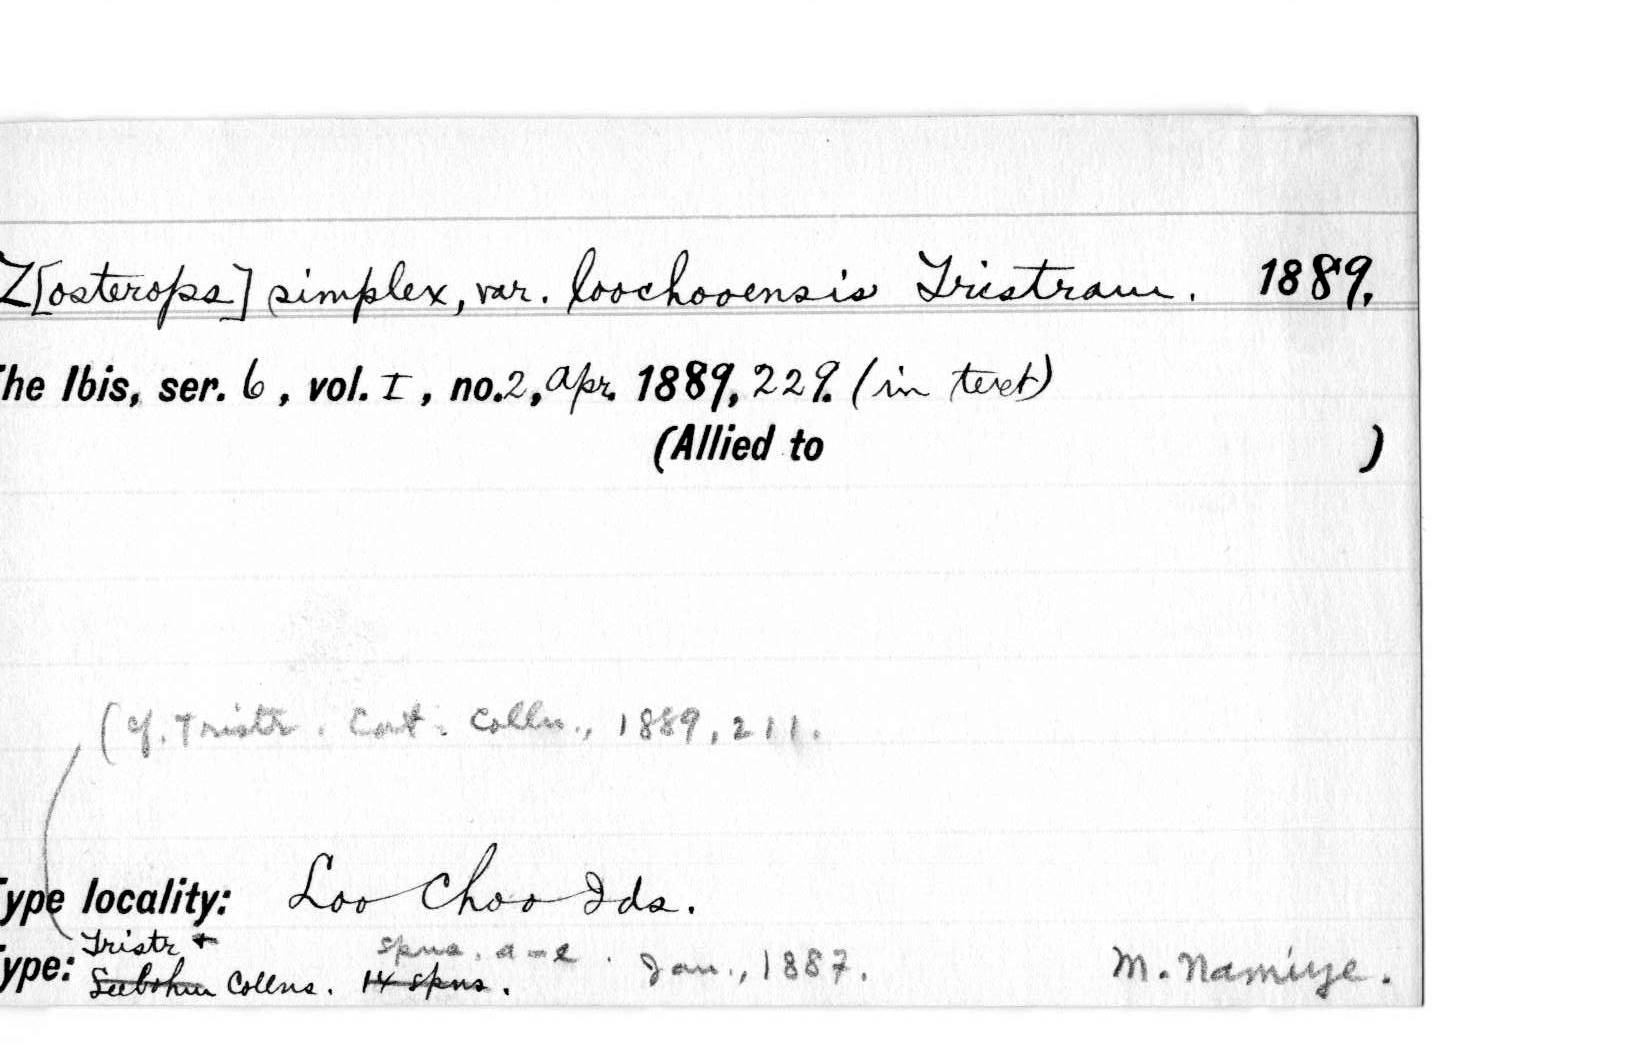 Z[osterops] simplex, var. loochooensis Tristram. 1889.
The Ibis, ser. 6, vol. I, no. 2, Apr. 1889, 229. (in text)
(Allied to )
(Cf. Tristr. Cat. Colln., 1889, 211.
Type locality: Loo Choo Ids.
Tristr + spns. a-e. Jan., 1887. M. Namiye.
Type: Seebohm Collns. 14 spns.